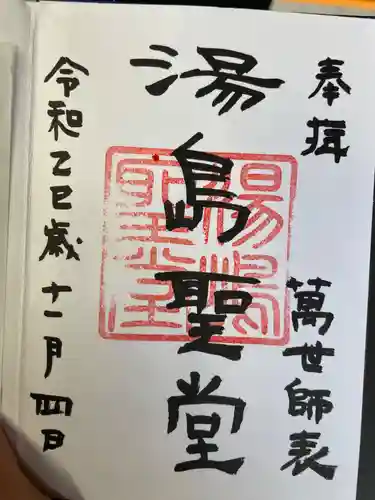 奉拜
萬世師表
湯島聖堂
湯島聖堂
令和乙巳歳十一月四日